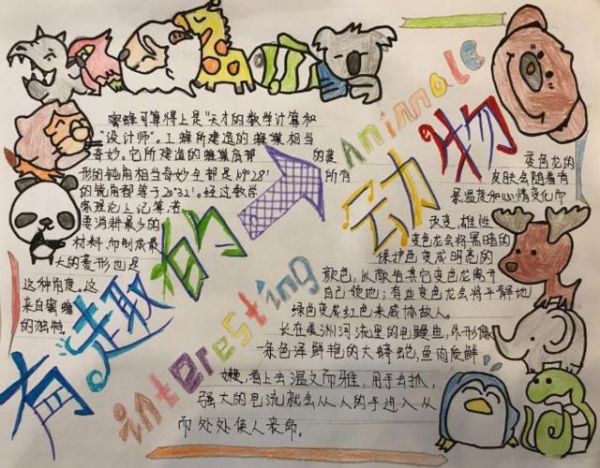 有趣的
动物
interesting
Animale
蜜蜂可算得上是"天才的数学计算和
"设计师"。工蜂所建造的蜂巢相当
奇妙。它所建造的蜂巢底部 的菱
形的钝角相当奇妙全都是 28′ 所有
的锐角都等于 32′。经过数学
家理论上记算,若
要消耗最少的
材料,而制成最
大的菱形也是
这种角度。这
来自蜜蜂
的独特
变色龙的
皮肤会随着背
景温度和心情变化而
改变,雄性
变色龙会将黑暗的
保护色变成明亮的
颜色,从 告其它变色龙离开
自己领地;有些变色龙会将平静地
绿色变成红色来威 敌人。
长在美洲河流里的电鳗鱼,外形像
一条色泽鲜艳的大蟒蛇,鱼肉质鲜
嫩,看上去温文而雅,用手去抓,
强大的电流就会从人的手进入从
而处处使人丧命。